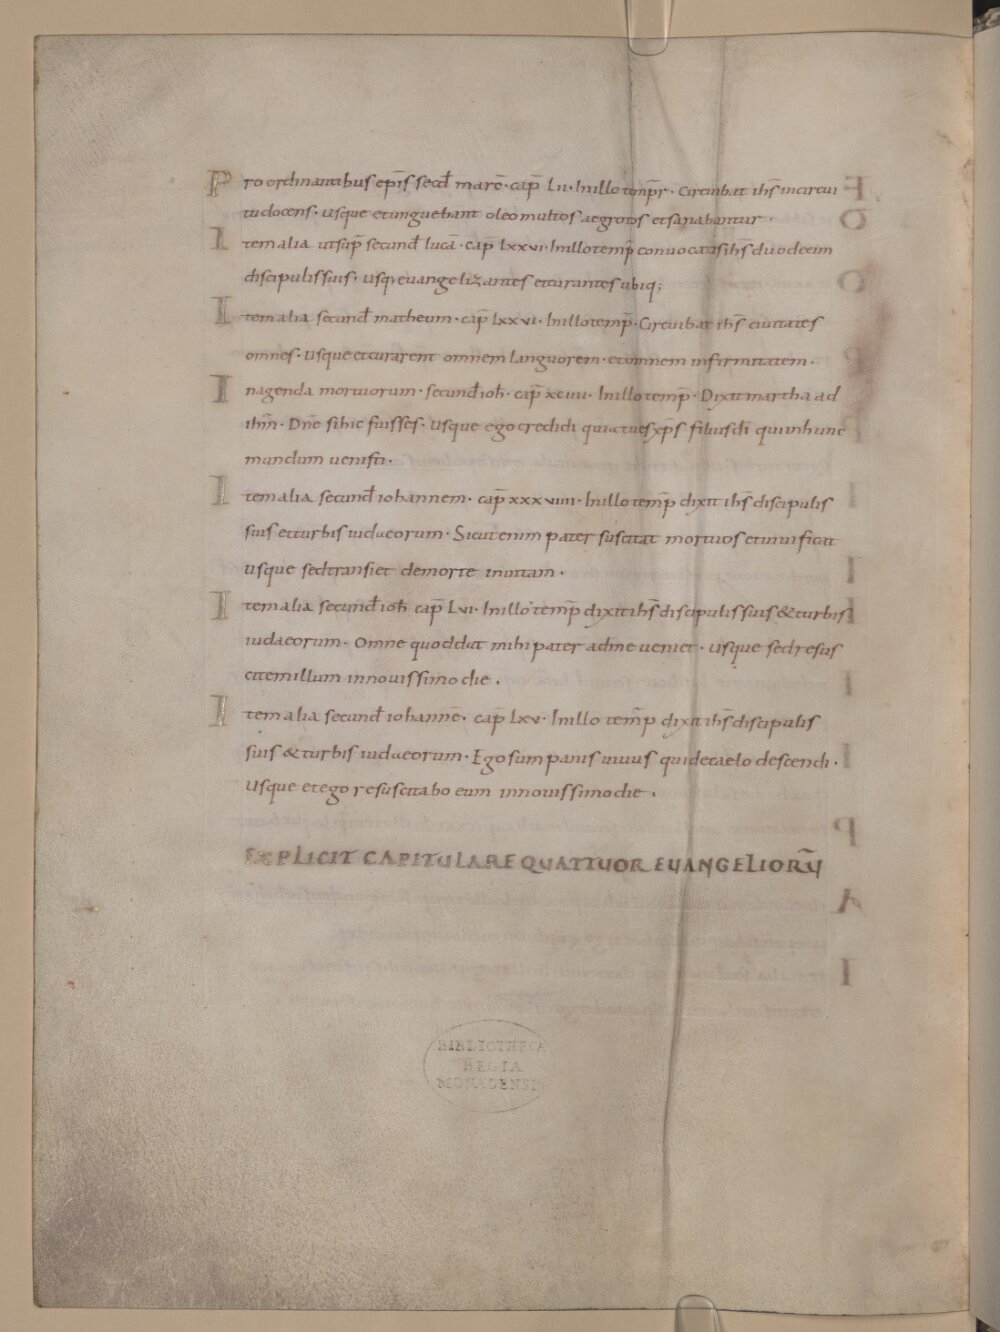 Pro ordinantibus ep̄is secd̄ marc̄· cap̄ Lii· In illo temp̄r· Circuibat ih̄s in circui
tu docens· usque et unguebant oleo multos aegrotos et sanabantur·
Item alia ut sup̄ secund̄ lucā· cap̄ Lxxvi· In illo temp̄ convocatis ih̄s duodecim
discipulis suis· usq; euangelizantes et curantes ubiq;
Item alia secund̄ matheum· cap̄ Lxxvi· In illo temp̄· Circuibat ih̄s ciuitates
omnes· usque et curarent omnem languorem· et omnem infirmitatem·
In agenda mortuorum· secund̄ ioh̄· cap̄ xciiii· In illo temp̄· Dixit martha ad
ih̄m· Dn̄e si hic fuisses· usque ego credidi quia tu es xp̄s filius dī qui in hunc
mundum uenisti·
Item alia secund̄ iohannem· cap̄ xxxviiii· In illo temp̄ dixit ih̄s discipulis
suis et turbis iudaeorum· Sicut enim pater suscitat mortuos et uiuificat
usque sed transiet de morte in uitam·
Item alia secund̄ ioh̄ cap̄ Lvi· In illo temp̄ dixit ih̄s discipulis suis & turbis
iudaeorum· Omne quod dat mihi pater ad me ueniet· usque sed resus
citem illum in nouissimo die·
Item alia secund̄ iohannē· cap̄ Lxv· In illo tem̄p dixit ih̄s discipulis
suis & turbis iudaeorum· Ego sum panis uiuus qui de caelo descendi·
usque et ego resuscitabo eum in nouissimo die·
EXPLICIT CAPITULARE QUATTUOR EUANGELIORŪ
BIBLIOTHECA
REGIA
MONACENSIS